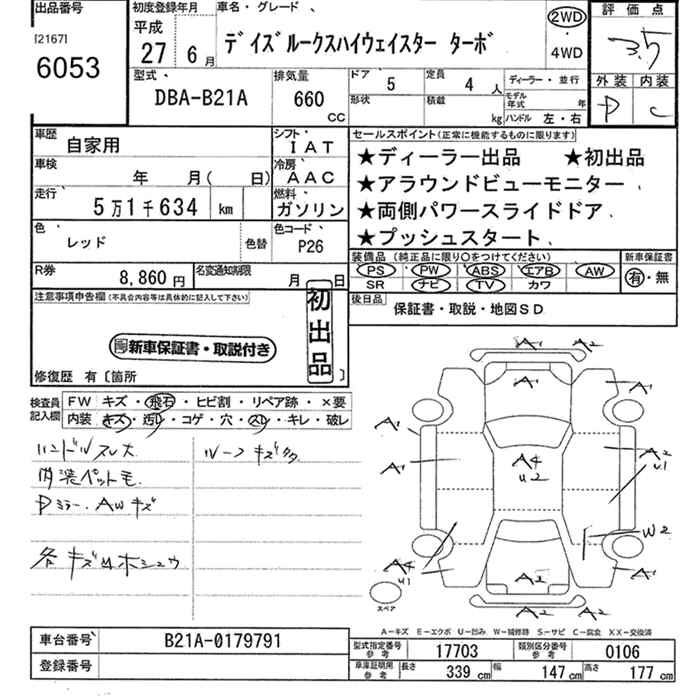 出品番号
[2167]
6053
初度登録年月
平成
27 6月
車名・グレード
デイズルークスハイウェイスター ターボ
2WD
・
4WD
評価点
3.5
外装 内装
D C
型式
DBA-B21A
排気量
660
CC
ドア 5 定員 4 人
形状 積載 kg
ディーラー・並行
モデル年式 年
ハンドル 左・右
車歴
自家用
シフト
IAT
車検 年 月( 日)
冷房
AAC
走行
5万1千634 km
燃料
ガソリン
色
レッド
色替
色コード
P26
R券
8,860円
名変通知期限 月 日
セールスポイント(正常に機能するものに限ります)
★ディーラー出品 ★初出品
★アラウンドビューモニター
★両側パワースライドドア
★プッシュスタート
装備品(純正品に限り〇をつけてください)
PS・PW・ABS・エアB・AW
SR ナビ・TV カワ
新車保証書
有・無
後日品
保証書・取説・地図SD
注意事項申告欄(不具合内容等は具体的に記入して下さい)
初出品
新車保証書・取説付き
修復歴 有〔箇所 〕
検査員記入欄
FW キズ・飛石・ヒビ割・リペア跡・×要
内装 キズ・汚レ・コゲ・穴・スレ・キレ・破レ
ハンドルスレ大
内装ペットモ
Dミラー.AWキズ
各キズ凹ホシュウ
ルーフキズ
A1 A2
A1 A2
A1
A1
A4
U2
A2
U1
W2
A4
U1
A2
A2 A2
スペア
A-キズ E-エクボ U-凹み W-補修跡 S-サビ C-腐食 XX-交換済
車台番号
B21A-0179791
登録番号
型式指定番号
参考
17703
類別区分番号
参考
0106
車庫証明用
参考
長さ 339 cm 幅 147 cm 高さ 177 cm